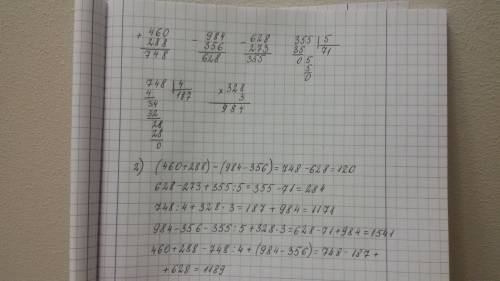 + 460 - 984 - 628 355 | 5
288 356 273 35 71
748 628 355 05
5
0
748 | 4 × 328
4 187 3
34 984
32
28
28
0
2) (460+288)-(984-356)=748-628=120
628-273+355:5=355-71=284
748:4+328·3=187+984=1171
984-356-355:5+328·3=628-71+984=1541
460+288-748:4+(984-356)=748-187+
+628=1189